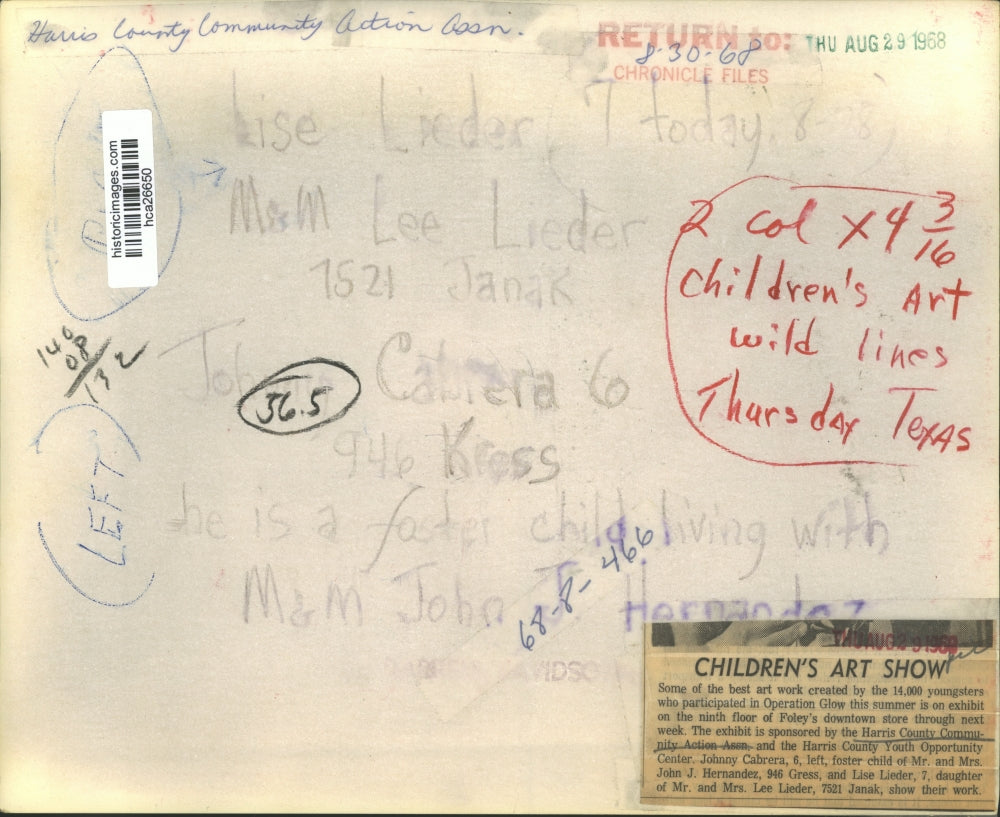 Harris County Community Action Assn.
RETURN to:
8-30-68
CHRONICLE FILES
THU AUG 29 1968
Lise Lieder, 7 today, 8-28
M&M Lee Lieder
7521 Janak
Cabrera 6
946 Kress
he is a foster child living with
M&M John J. Hernandez
historicimages.com
hca26650
2 col x 4 3/16
Children's Art
wild lines
Thursday Texas
36.5
LEFT
68-8-466
THU AUG 29 1968
CHILDREN'S ART SHOW
Some of the best art work created by the 14,000 youngsters
who participated in Operation Glow this summer is on exhibit
on the ninth floor of Foley's downtown store through next
week. The exhibit is sponsored by the Harris County Commu-
nity Action Assn. and the Harris County Youth Opportunity
Center. Johnny Cabrera, 6, left, foster child of Mr. and Mrs.
John J. Hernandez, 946 Gress, and Lise Lieder, 7, daughter
of Mr. and Mrs. Lee Lieder, 7521 Janak, show their work.